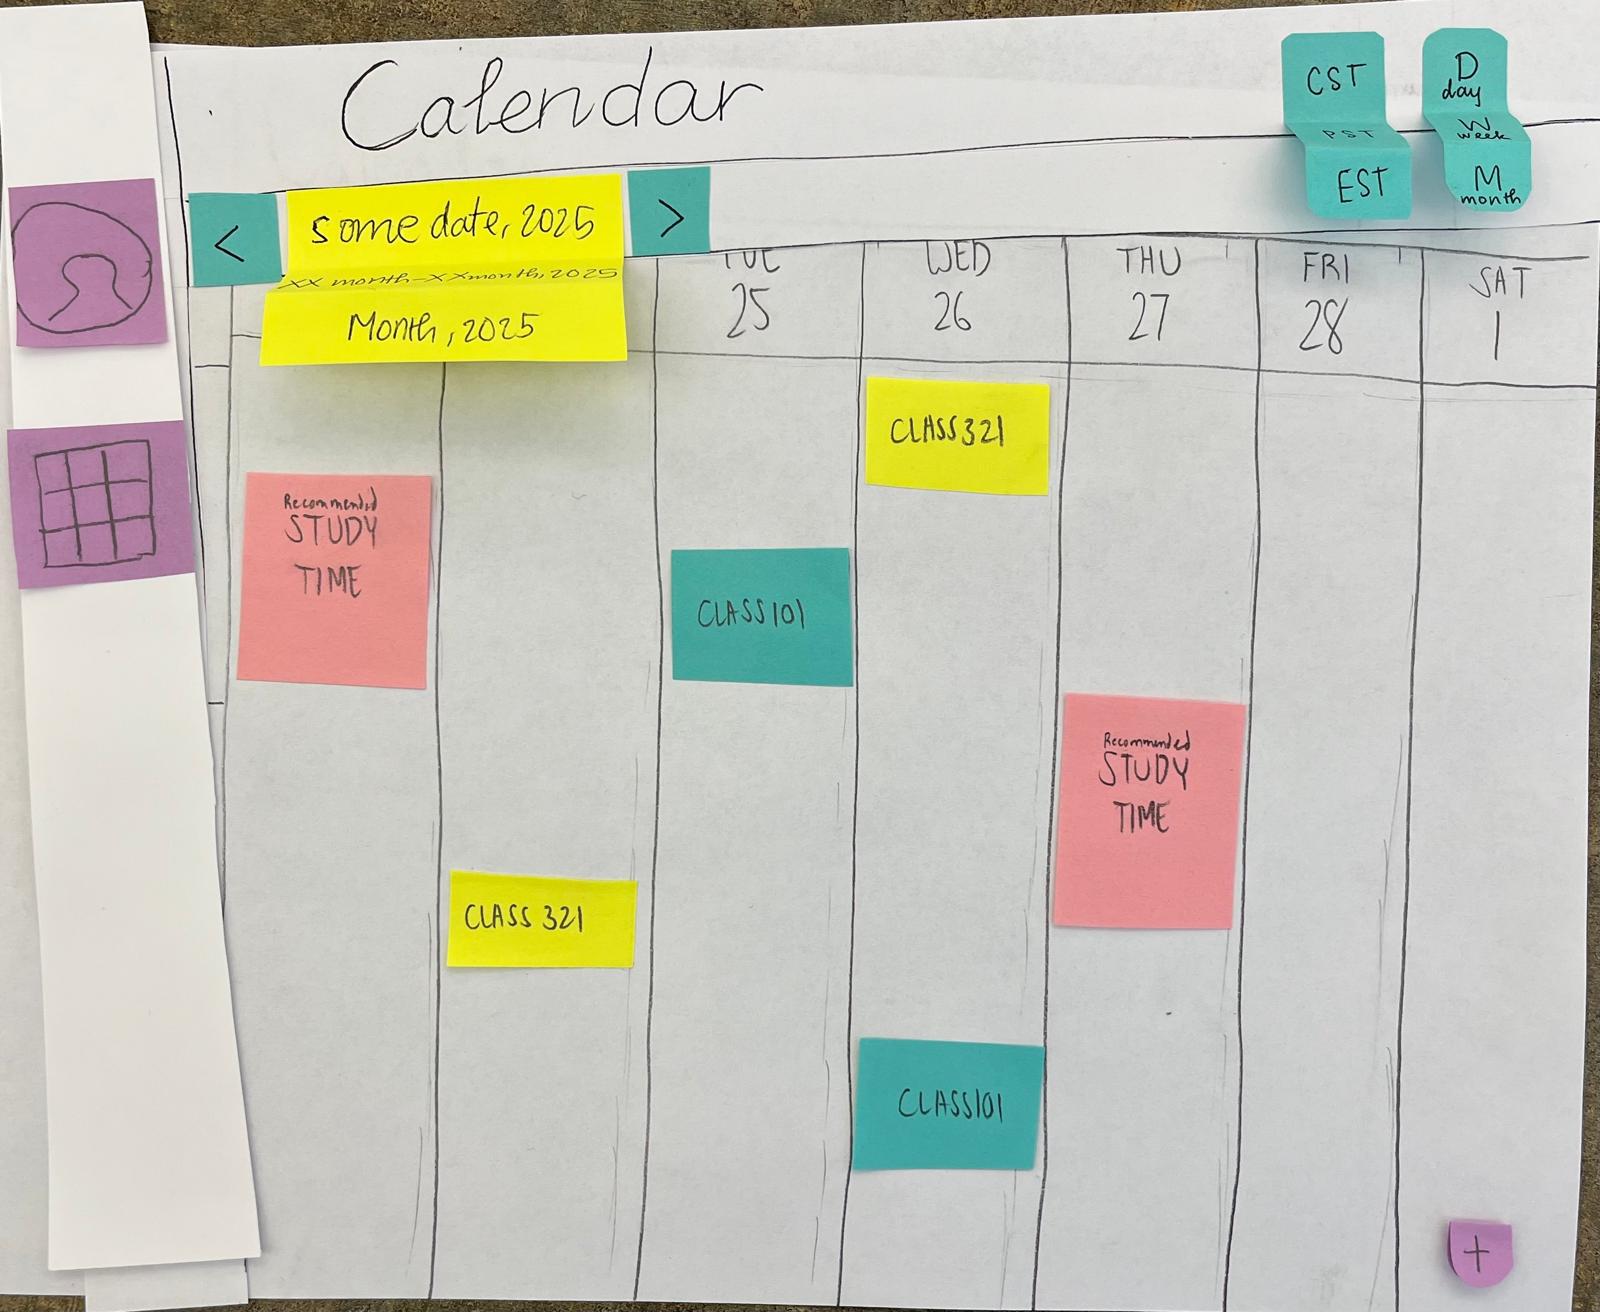 Calendar
CST
PST
EST
D
day
W
week
M
month
<
some date, 2025
>
XX month-XXmonth, 2025
Month, 2025
TUE
25
WED
26
THU
27
FRI
28
SAT
1
CLASS 321
Recommended
STUDY
TIME
CLASS101
Recommended
STUDY
TIME
CLASS 321
CLASS101
+